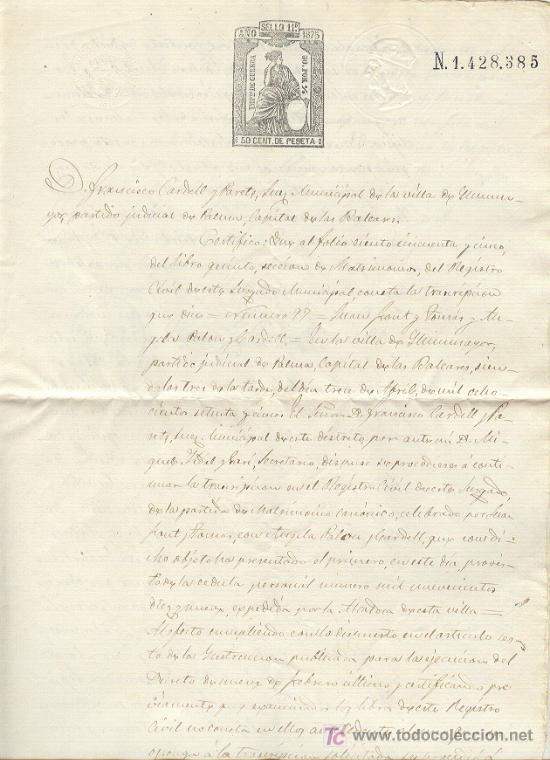 SELLO 11º
AÑO 1875
IMPTO DE GUERRA
50 CENT. DE PESETA
N.1.428.385
D. Francisco Cardell y Parets, Juez Municipal de la villa de Llummayor, partido judicial de Palma, Capital de las Baleares.
Certifico: Que al folio ciento cincuenta y cinco,
del libro quinto, seccion de Matrimonios, del Registro
Civil de este Juzgado Municipal, consta la trascripcion
que dice = Numero 97 = Juan Font y Tomas y An-
gela Palou y Cardell. = En la villa de Llummayor,
partido judicial de Palma, Capital de las Baleares, sien-
do las tres de la tarde, del dia trece de Abril, de mil ocho-
cientos setenta y cinco. El Señor D. Francisco Cardell y Pa-
rets, Juez Municipal de este distrito, por ante mi D. Mi-
guel Secretario, dispuso se procediera á conti-
nuar la trascripcion en el Registro Civil de este Juzgado,
de la partida de Matrimonio Canónico, celebrado por Juan
Font y Tomas, con Angela Palou y Cardell, que con di-
cho objeto ha presentado el primero, en este dia, provis-
to de la cedula personal numero mil novecientos
diez y nueve, expedida por la Alcaldia de esta villa =
Al efecto cumpliendo con lo dispuesto en el articulo
de la Instruccion publicada para la ejecucion del
Decreto de nueve de Febrero último y certificando pre-
viamente que examinados los libros de este Registro
Civil no consta en ellos
oponga á la trascripcion solicitada se procedió á
TC todocoleccion
www.todocoleccion.net